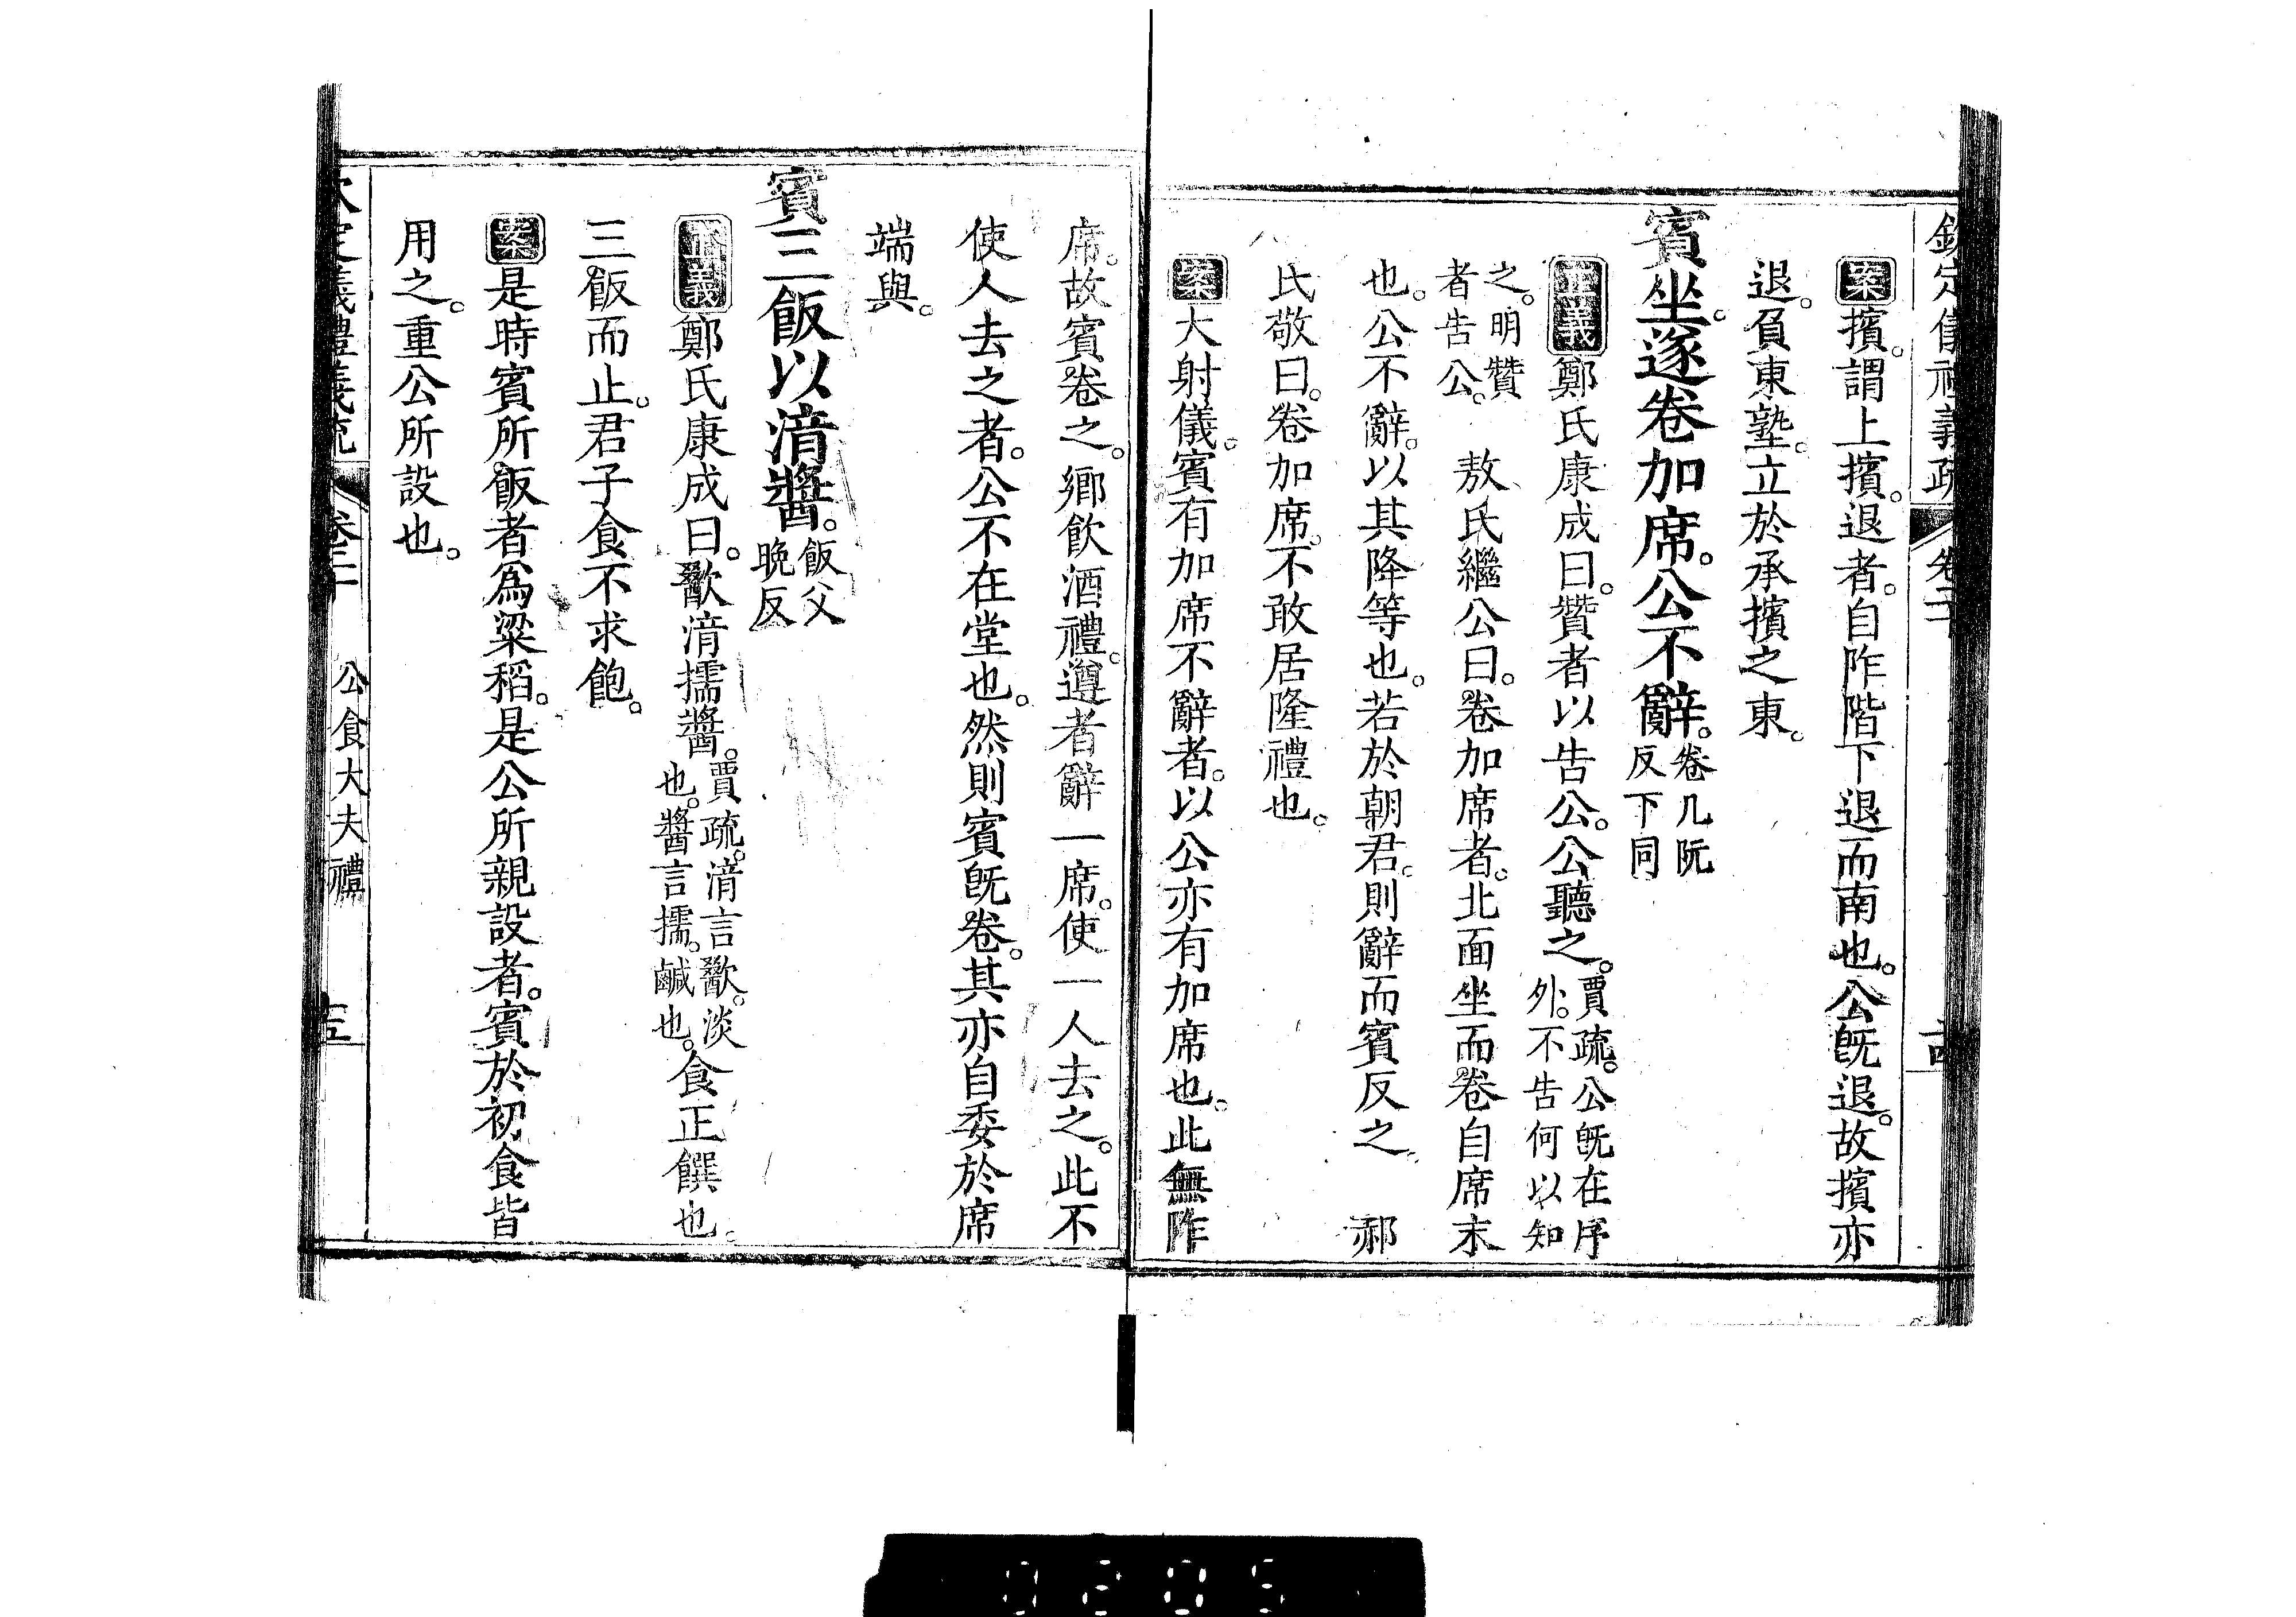 欽定儀禮義疏 卷二十
案擯。謂上擯。退者。自阼階下退而南也。公旣退。故擯亦
退。負東塾。立於承擯之東。
賓坐。遂卷加席。公不辭。卷几阮
反下同
正義鄭氏康成曰。贊者以告公。公聽之。賈疏。公旣在序
外。不告何以知
之。明贊
者告公。
敖氏繼公曰。卷加席者。北面坐而卷自席末
也。公不辭。以其降等也。若於朝君。則辭而賓反之。 郝
氏敬曰。卷加席。不敢居隆禮也。
案大射儀。賓有加席不辭者。以公亦有加席也。此無阼
席。故賓卷之。鄉飲酒禮。遵者辭一席。使一人去之。此不
使人去之者。公不在堂也。然則賓旣卷。其亦自委於席
端與。
賓三飯以湆醬。飯父
晚反
正義鄭氏康成曰。歠湆擩醬。賈疏。湆言歠。淡
也。醬言擩。鹹也。
食正饌也。
三飯而止。君子食不求飽。
案是時賓所飯者爲粱稻。是公所親設者。賓於初食皆
用之。重公所設也。
欽定儀禮義疏 卷二十 公食大夫禮
0205